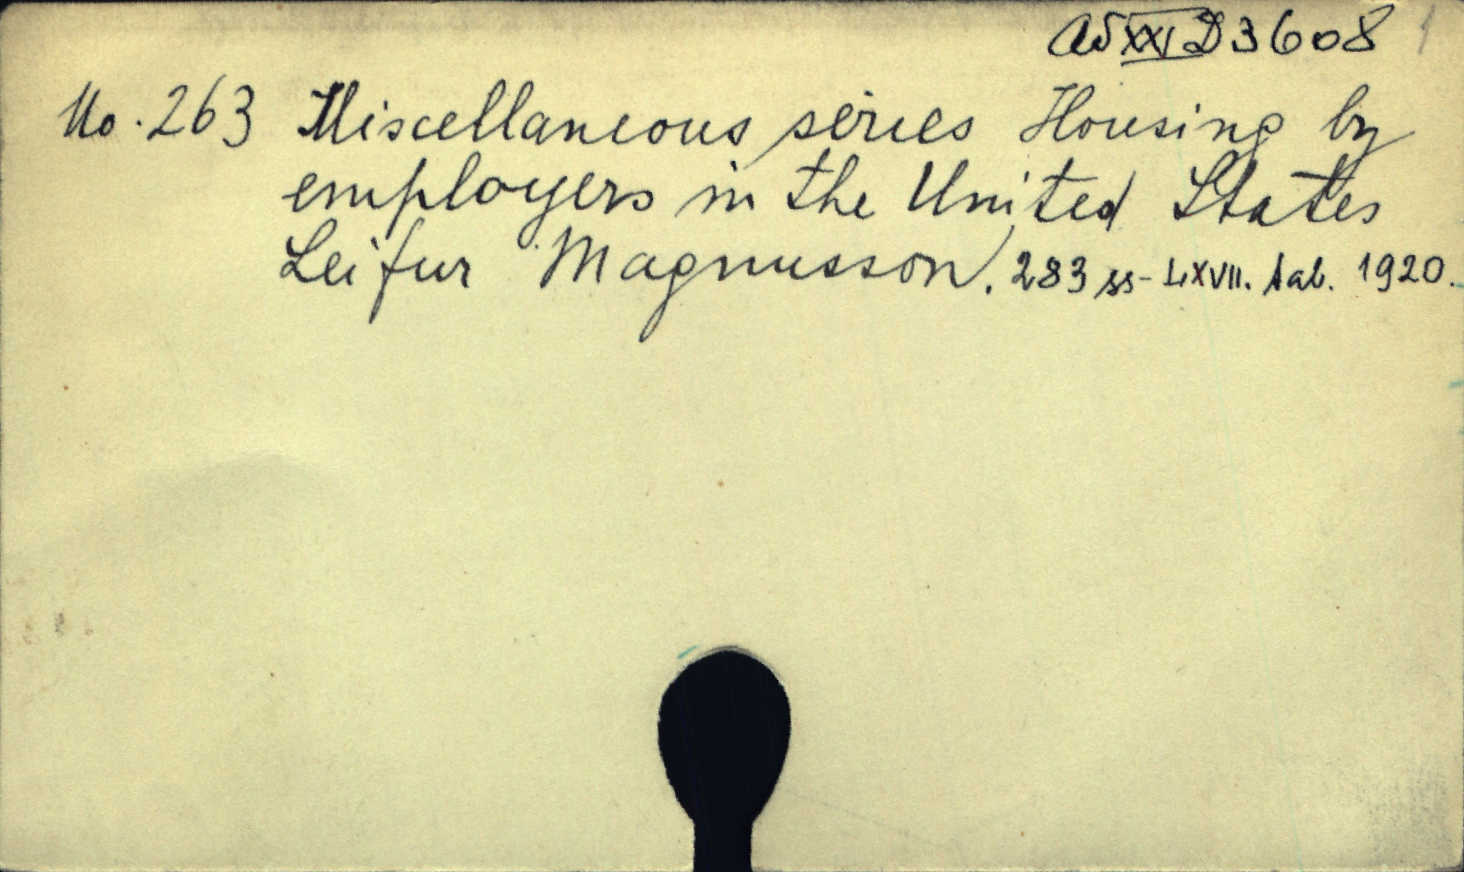 ad XXI D 3608
No. 263 Miscellaneous series Housing by
employers in the United States
Leifur Magnusson. 283 ss - LXVII. tab. 1920.